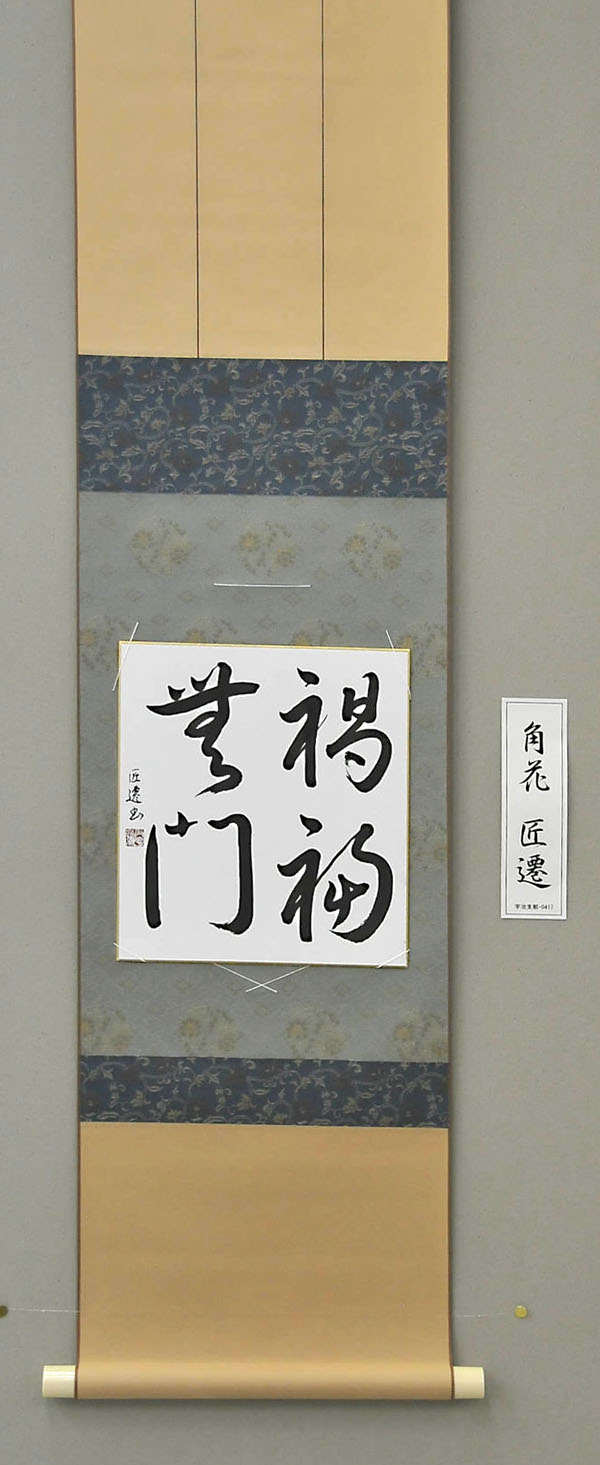 禍福
無門
匠遷書
角花 匠遷
宇治支部-0417